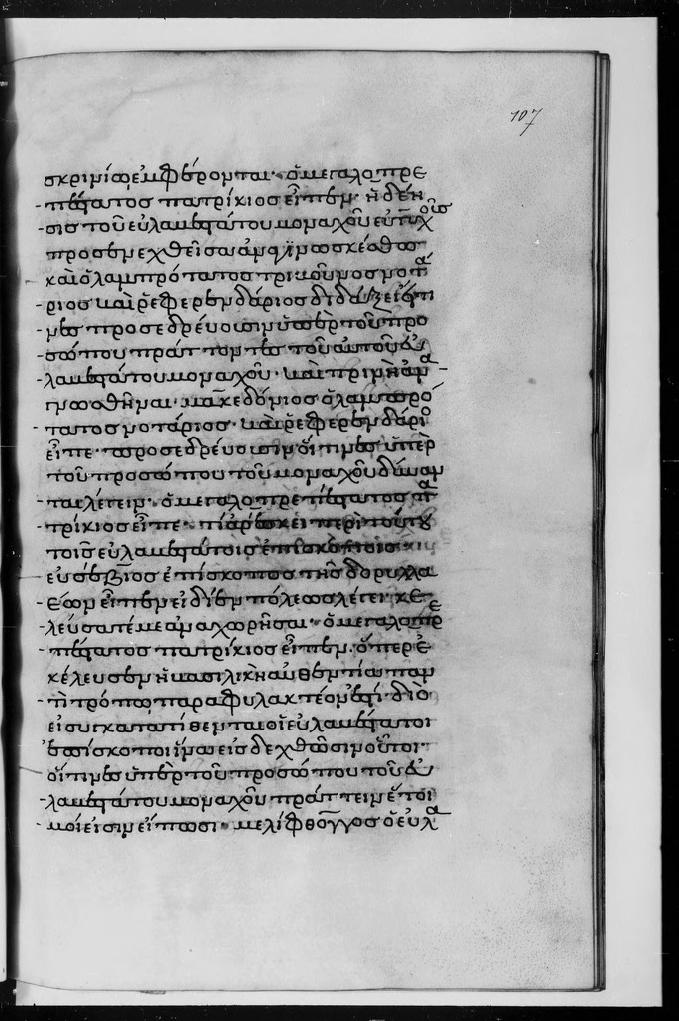 107
σκρινίῳ ἐμφέρονται· ὁ μεγαλοπρε
πέστατος πατρίκιος εἶπεν· ἡ δέη
σις τοῦ εὐλαβεστάτου μοναχοῦ εὐτυχοῦς
προσενεχθεῖσα ἀναγινωσκέσθω·
καὶ ὁ λαμπρότατος τριβοῦνος νοτά
ριος καὶ ῥεφερενδάριος διδάξει ὅτι
μὲν προσεδρεύουσιν ὑπὲρ τοῦ προ
σώπου πράττοντες τοῦ αὐτοῦ εὐ
λαβεστάτου μοναχοῦ· καὶ πρὶν ἢ ἀνα
γνωσθῆναι· μακεδόνιος ὁ λαμπρό
τατος νοτάριος· καὶ ῥεφερενδάριος
εἶπε· προσεδρεύουσιν οἵτινες ὑπὲρ
τοῦ προσώπου τοῦ μοναχοῦ δύναν
ται λέγειν· ὁ μεγαλοπρεπέστατος πα
τρίκιος εἶπε· τί ἀρέσκει περὶ τούτου
τοῖς εὐλαβεστάτοις ἐπισκόποις·
εὐσέβιος ἐπίσκοπος τῆς δορυλλα
έων εἶπεν εἰ δὲ πόλεως λέγει· κε
λεύσατέ με ἀναχωρῆσαι· ὁ μεγαλοπρε
πέστατος πατρίκιος εἶπεν· ὅπερ ἐ
κέλευσεν ἡ βασιλικὴ αὐθεντία παν
τὶ τρόπῳ παραφυλακτέον ἐστί· διὸ
εἰ συγκατατίθενται οἱ εὐλαβέστατοι
ἐπίσκοποι ἵνα εἰσδεχθῶσιν οὗτοι·
οἵτινες ὑπὲρ τοῦ προσώπου τοῦ εὐ
λαβεστάτου μοναχοῦ πράττειν ἕτοι
μοί εἰσιν εἴπωσι· μελίφθογγος ὁ εὐλα